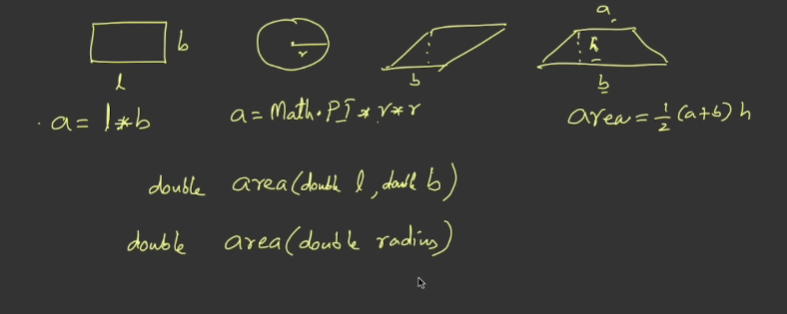 a
b
r
h
l
b
b
a = l*b
a = Math.PI * r*r
area = 1/2 (a+b) h
double area(double l, double b)
double area(double radius)